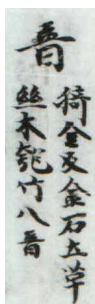 音
猗金反金石土革
絲木匏竹八音